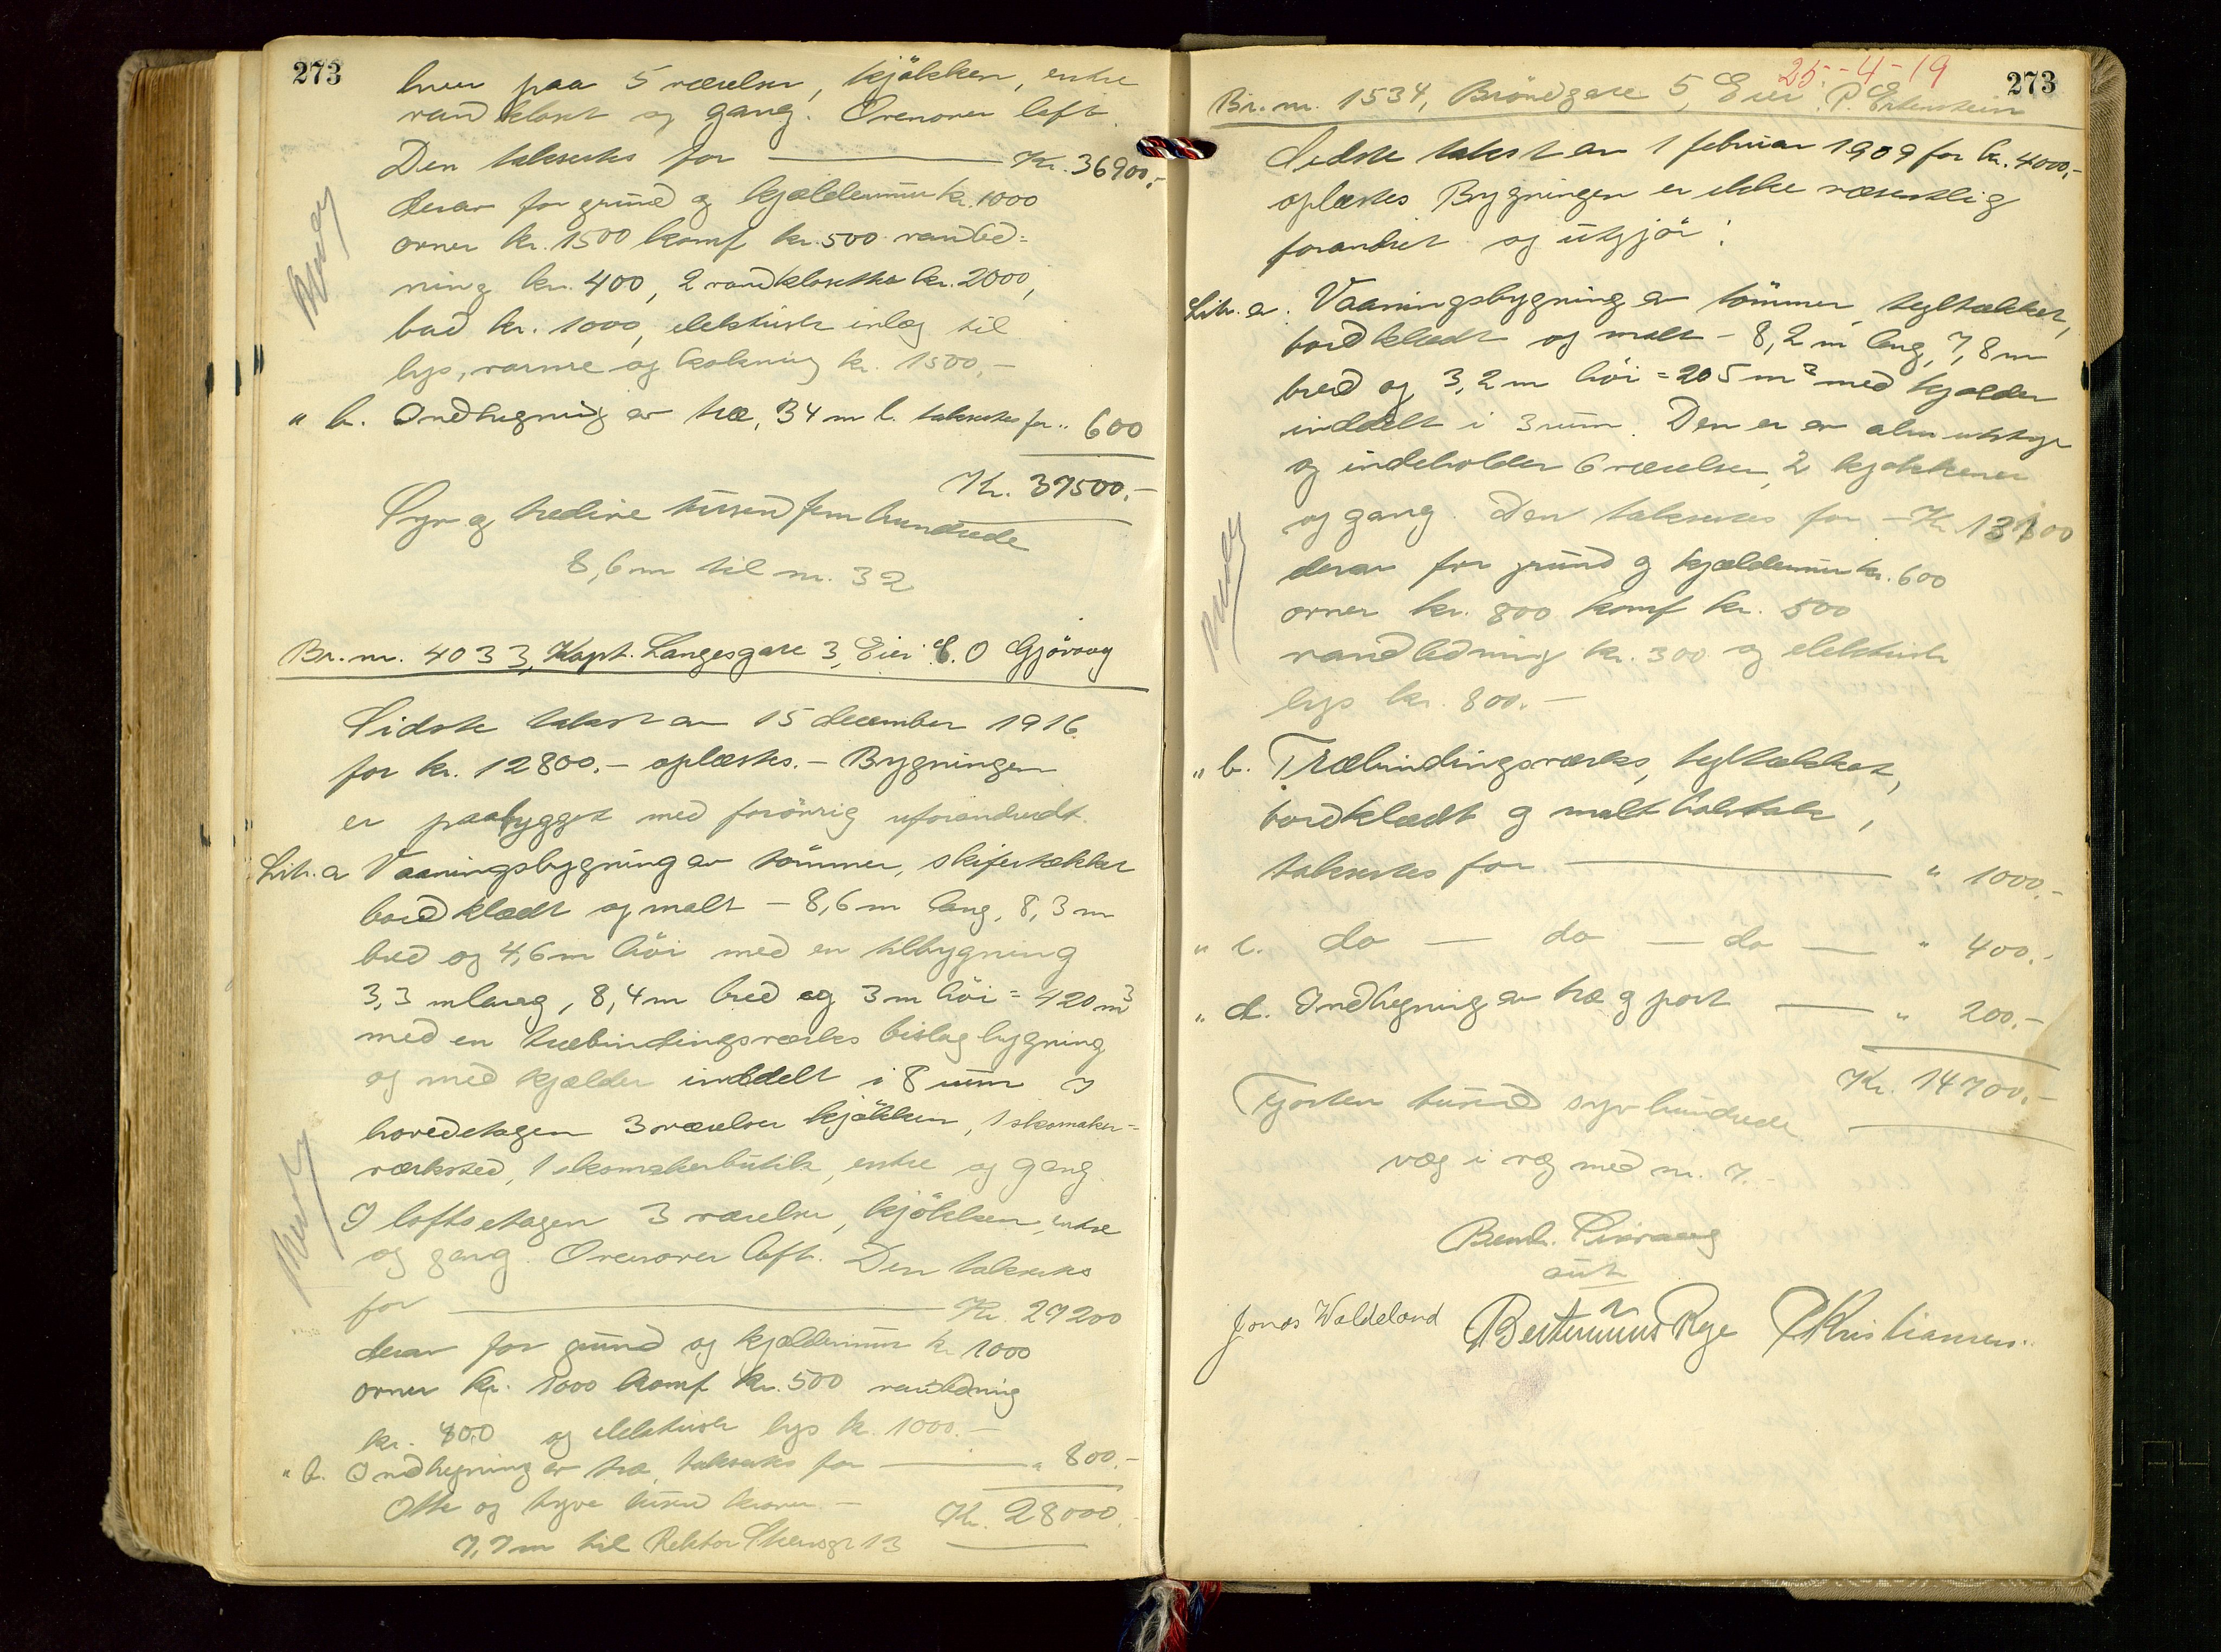 273
hver paa 5 værelser, kjökken, entre
vandkloset og gang. Ovenover loft.
Den takseres for — Kr. 36900.-
derav for grund og kjældermur kr. 1000
ovner kr. 1500 komf kr. 500 vandled=
ning kr. 400, 2 vandklosetter kr. 2000,
bad kr. 1000, elektrisk inlæg til
lys, varme og kokning kr. 1500,-
" b. Indhegning av træ, 34 m l. takseres for " 600
Kr. 37500.-
Syv og tredive tusend fem hundrede
8,6 m til nr. 32
Br. nr. 4033, Kapt. Langesgate 3, Eier: E. O Gjövaag
Sidste takst av 15 december 1916
for kr. 12800.- oplæstes. - Bygningen
er paabygget med forövrig uforandredt.
Litr. a Vaaningsbygning av tömmer, skifertækket
bordklædt og malt - 8,6 m lang, 8,3 m
bred og 4,6 m höi med en tilbygning
3,3 m lang, 8,4 m bred og 3 m höi = 420 m³
med en træbindingsværks bislagbygning
og med kjælder inddelt i 8 rum I
hovedetagen 3 værelser kjökken, 1 skomaker=
værksted, 1 skomakerbutik, entre og gang.
I loftsetagen 3 værelser, kjökken, entre
og gang. Ovenover loft. Den takseres
for — Kr. 27200
derav for grund og kjældermur kr 1000
ovner kr. 1000 komf kr. 500 vandledning
kr. 400 og elektrisk lys kr. 1000.-
" b. Indhegning av træ, takseres for — " 800.-
Otte og tyve tusend kroner. - Kr. 28000.-
7,7 m til Rektor Steensgt 13
25.-4-19
273
Br. nr. 1534, Bröndgate 5, Eier: P. Ertenstein
Sidste takst av 1 februar 1909 for kr. 4000.-
oplæstes Bygningen er ikke væsentlig
forandret og utgjör:
Litr. a. Vaaningsbygning av tömmer tegltækket,
bordklædt og malt - 8,2 m lang, 7,8 m
bred og 3,2 m höi = 205 m³ med kjælder
inddelt i 3 rum. Den er av alm utstyr
og indeholder 6 værelser, 2 kjøkkener
og gang. Den takseres for - Kr. 13100
derav for grund og kjældermur kr. 600
ovner kr. 800 komf kr. 500
vandledning kr. 300 og elektrisk
lys kr. 800.-
" b. Træbindingsværks, tegltækket,
bordklædt og malt halvtak,
takseres for — " 1000.-
" c. do — do — do — " 400.-
" d. Indhegning av træ og port — " 200.-
Kr. 14700.-
Fjorten tusend syv hundrede
væg i væg med nr. 7.-
Jonas Waldeland Bertinius Rege P Kristiansen.